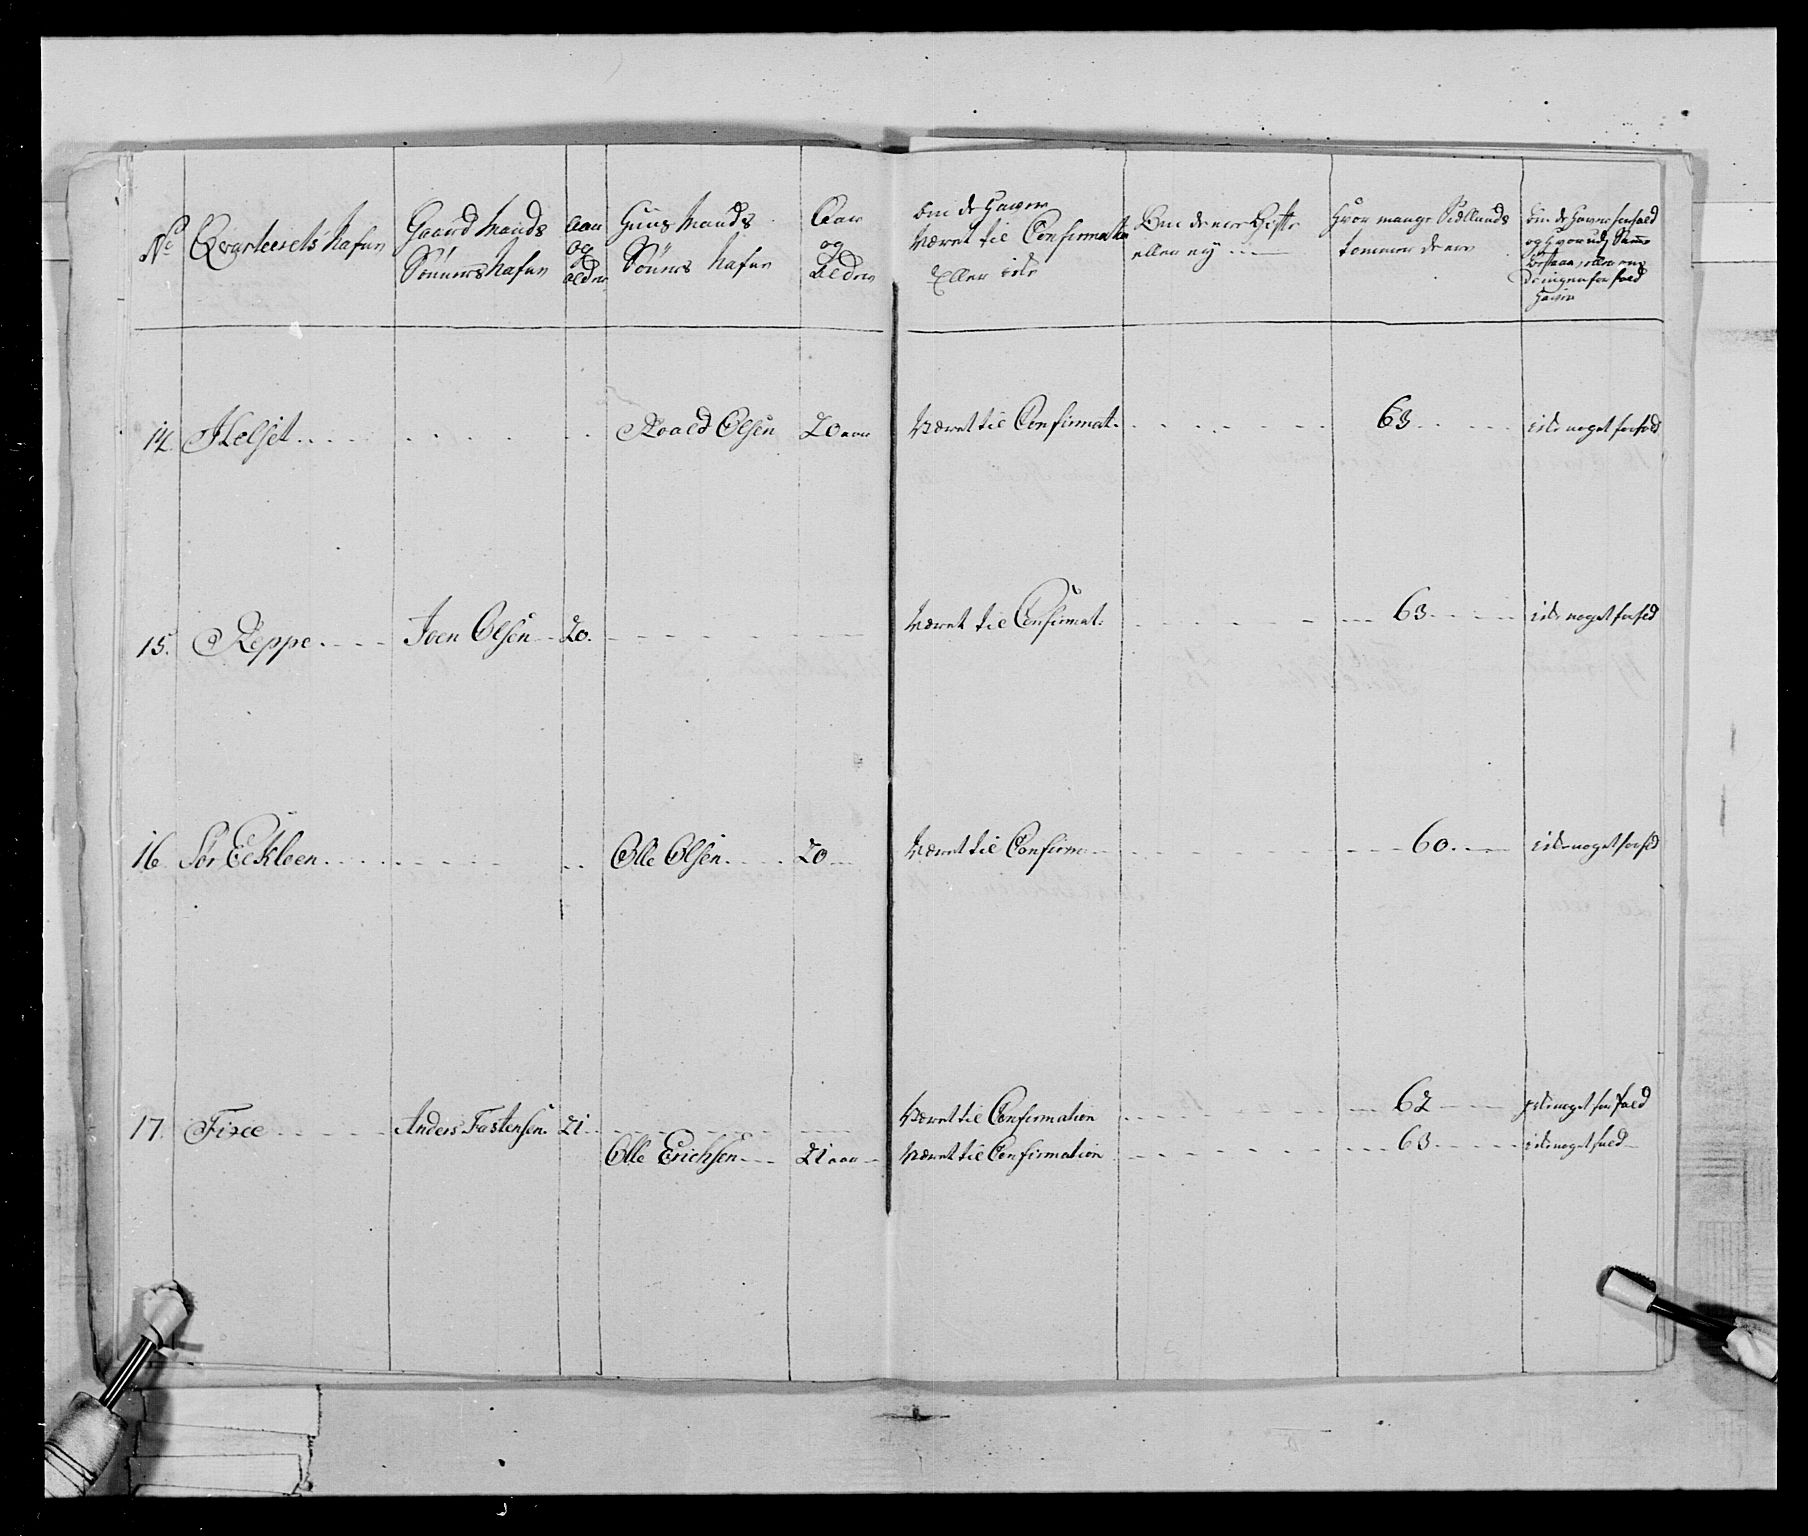 No
Qvarteerets Nafn
Gaard Mands
Sönners Nafn
Aar
og
Alder
Huus Mands
Sönners Nafn
Aar
og
Alder
Om de haver
Været til Confirmation
Eller icke
Om de ere Gifte
eller ey
Hvor mange Siællands
tommer de ere
Om de haver forfald
og hvorudj Samme
Bestaar, eller om
de ingen forfald
haver
14. Helset Roald Olsen 20 aar Været til Confirmat. 63 icke noget forfald
15. Reppe Joen Olsen 20. Været til Confirmat: 63 icke noget forfald
16. Sör Eekleen Olle Olsen 20 Været til Confirm 60 icke noget forfald
17. Fixee Anders Fastensen 21 Været til Confirmation 62 icke noget forfald
Olle Erichsen 21 aar Været til Confirmation 63 icke noget fald